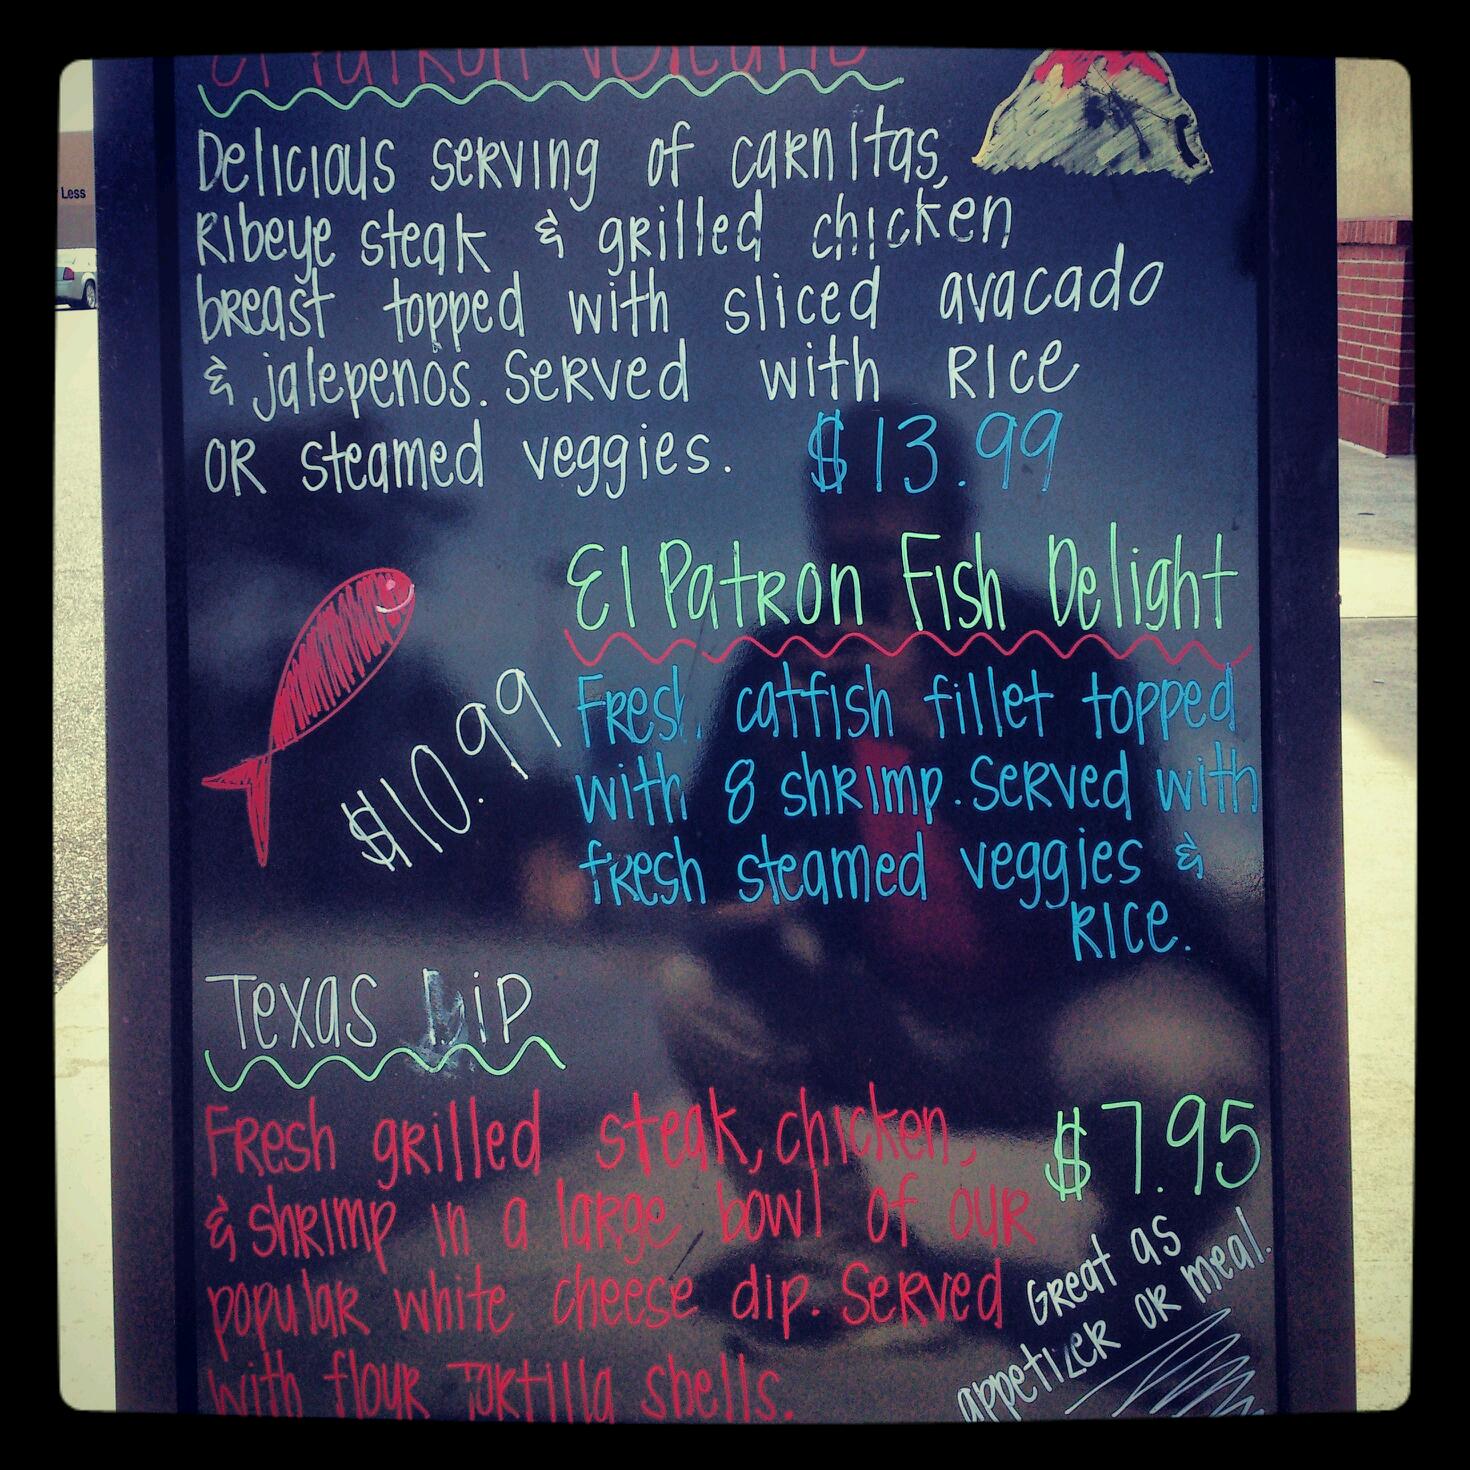 El Patron Volcano
Delicious serving of carnitas,
Ribeye steak & grilled chicken
breast topped with sliced avacado
& jalepenos. Served with Rice
OR steamed veggies. $13.99
El Patron Fish Delight
$10.99
Fresh catfish fillet topped
with 8 shrimp. Served with
fresh steamed veggies &
Rice.
Texas Dip
Fresh grilled steak, chicken,
& shrimp in a large bowl of our
popular white cheese dip. Served
with flour Tortilla shells.
$7.95
Great as
appetizer or meal.
Less